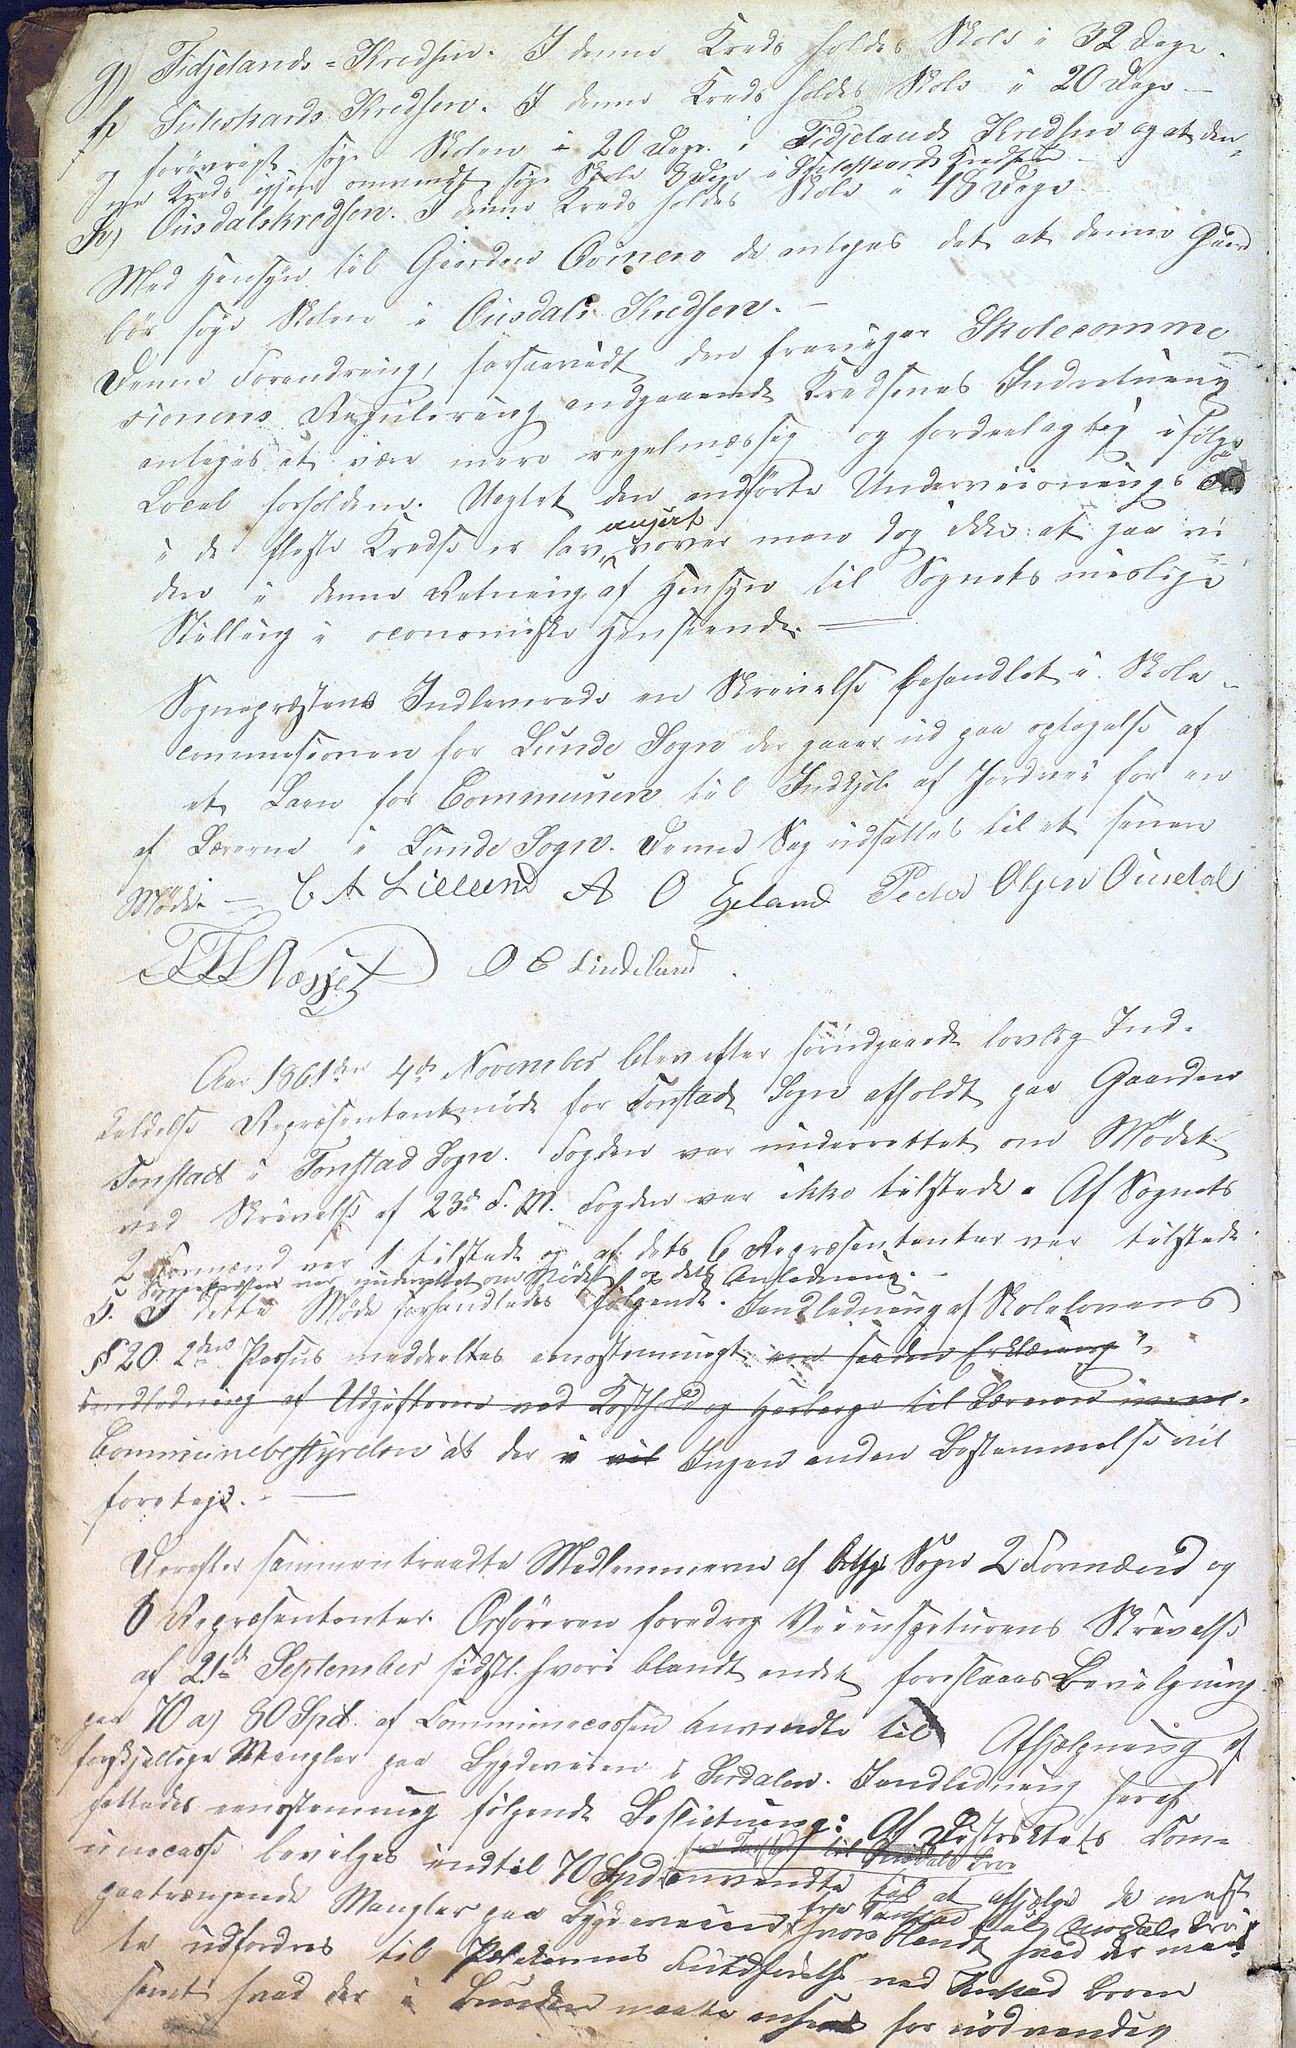 g) Fidjelands-Kredsen. I denne Kreds holdes Skole i 32 Dage.
h Suleskards Kredsen. I denne Kreds holdes Skole i 20 Dage –
og forøvrigt søge Skolen i 20 Dage i Fidjelands Kredsen og at den-
ne Kreds igjen omvendt søge Skole 8 Dage i Suleskards Kredsen
h) Ousdalskredsen. I denne Kreds holdes Skole i 48 Dage.
Med Hensyn til Gaarden Omen da antages det at denne Gaard
bør søge Skolen i Ousdals Kredsen. –
Denne Forandring, forsaavidt den fraviger Skolecomme-
sionens Regulering angaaende Kredsenes Indretning
antages at være mere regelmæssig og fordeelagtig ifølge
Local forholdene. Uagtet den anførte Underviisnings
i de fleste Kredse er lav, ansört vover man dog ikke at gaa vi-
dere i denne Retning af Hensyn til Sognets mislige
Stilling i oconomiske Henseende. –
Sognepræsten Indleverede en Skrivelse behandlet i Skole-
commesionen for Lunde Sogn der gaaer ud paa optagelse af
et Laan for Communen til Indkjøb af Jordvei for en
af Lærerne i Lunde Sogn. Denne Sag udsattes til et senere
Møde. – A O Egeland Peder Olsen Ousdal
O E Lindeland.
Aar 1861 den 4de November blev efter foreudgaaende lovlig Ind-
kaldelse Repræsentantmøde for Tonstad Sogn afholdt paa Gaarden
Tonstad i Tonstad Sogn. Fogden var underrettet om Mødet
ved Skrivelse af 23de F. M. Fogden var ikke tilstede. Af Sognets
2 Formænd var 1 tilstede og af dets 6 Repræsentanter var tilstede
Sognepræsten var underrettet om Mødet og dets Anledning. –
5. I dette Møde forhandledes følgende. I Anledning af Skolelovens
§ 20 2den Passus meddeeltes eenstemmigt en saadan Erklæring
I Andledning af Udgifterne ved Kosthold og Herberge til Læreren
Communebestyrelsen at der vil Ingen anden Bestemmelse vil
foretage. –
Derefter sammentraadte Medlemmerne af Sogn 2 Formænd og
6 Repræsentanter. Ordføreren foredrog Veiinspeturens Skrivelse
af 21de September sidstl. hvori blandt andet foreslaaes Bevilgning
paa 70 a) 80 Spd. af Communecassen anvendte til Afhjælpning af
forskjellige Mangler paa Bygdeveien i Sirdalen. I Andledning heraf
fattedes eenstemmig følgende Beslutning: Af Districtets Com-
unecasse bevilges indtil 70 Spd. anvendte til at afhjelpe de mest
paatrængende Mangler paa Bygdeveien fra Tonstad til Ousdals Bro
hvori blandt hvad der maat-
te udfordres til Fuldførelse ved Broen
samt hvad der i maatte ansees for nødvendig